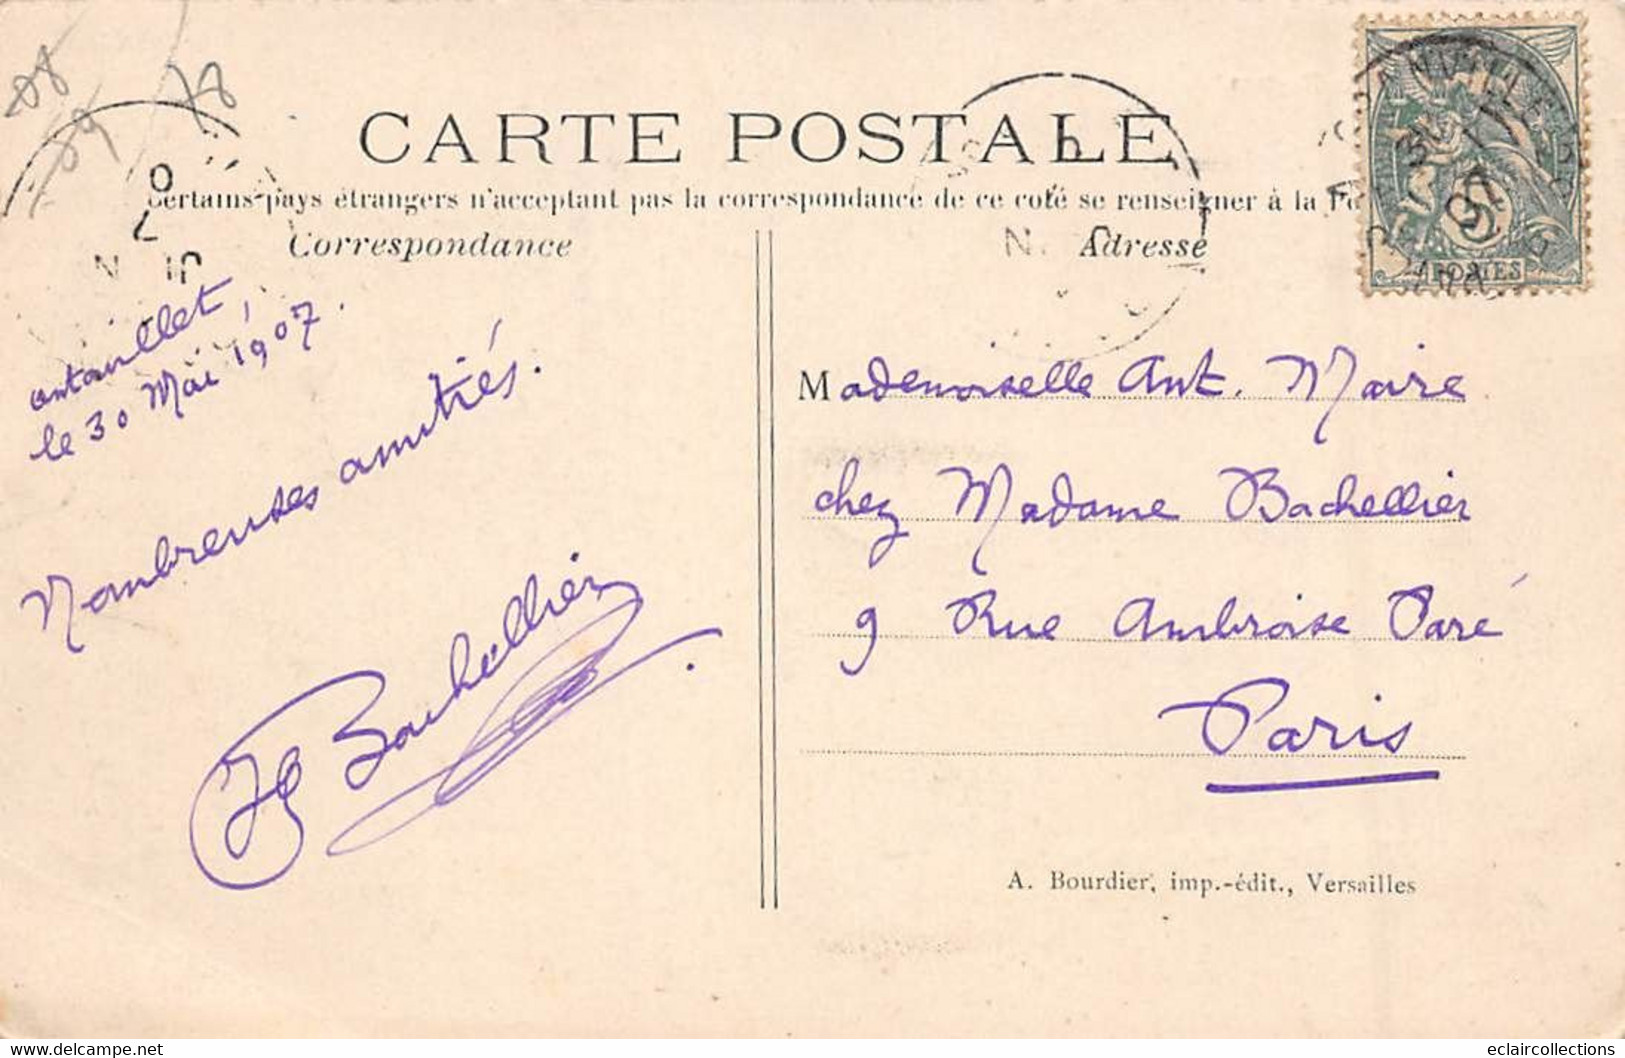 08
09
78
CARTE POSTALE
Certains pays étrangers n'acceptant pas la correspondance de ce coté se renseigner à la
Correspondance
Adresse
le 30 Mai 1907.
Nombreuses amitiés.
Bachellier
Mademoiselle Ant. Maire
chez Madame Bachellier
9 Rue Ambroise Paré
Paris
A. Bourdier, imp.-édit., Versailles
delcampe.net
eclaircollections